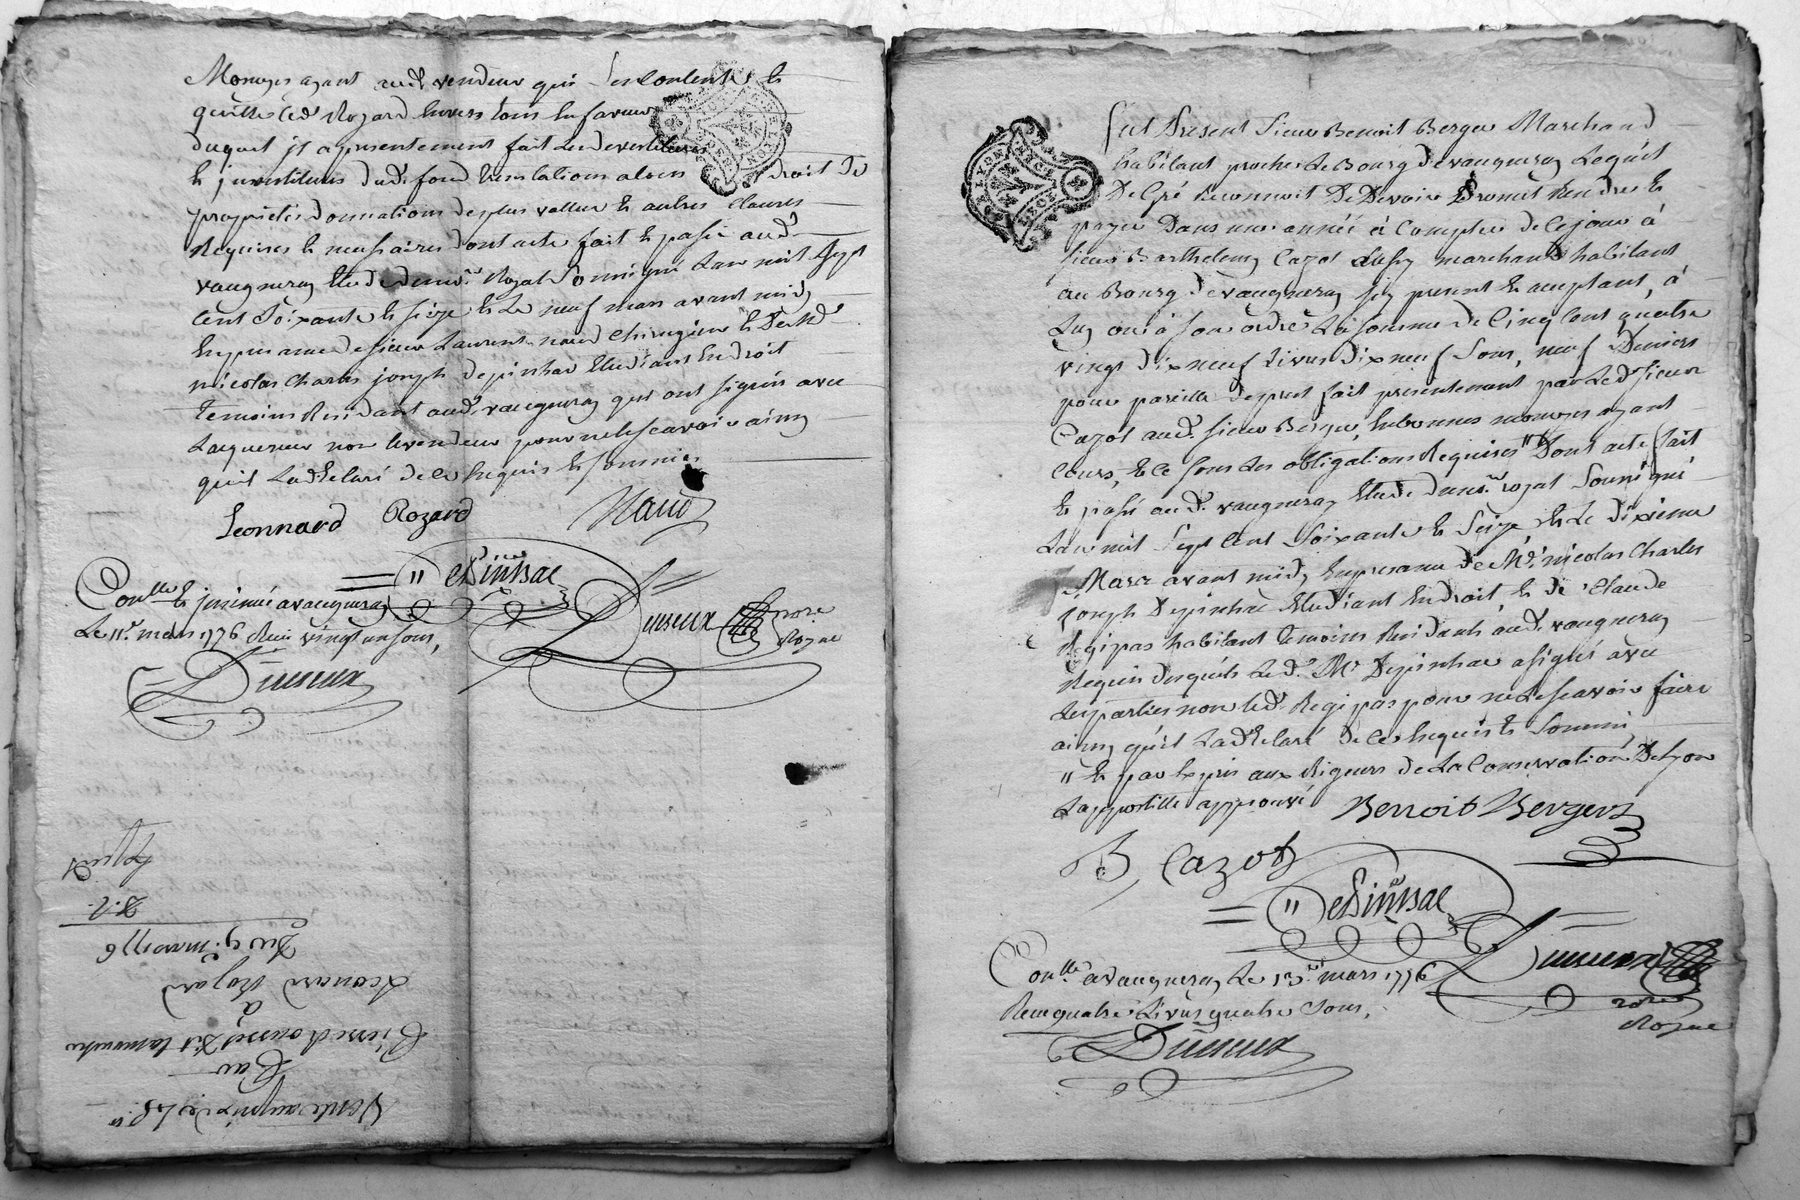 Monoyes ayant aud. vendeur qui sen Contente Et
quitte led. Rozard Envers tous En faveur
duquel jl a presentement fait Les devestitures
Et jnvestitures dud. fond translations alvers droit de
proprieté donnations de plus vallue Et autres Clauses
Requises Et necessaires dont acte fait Et passé aud.
vaugneray Etude du nore. Royal Soussigné Lan mil Sept
Cent Soixante Et Seize Et Le neuf mars avant midy
En presence de sieur Laurent naud Chirugien Et De Md.
nicolas Charles joseph depinhac Etudiant En droit
temoins Residant aud. vaugneray qui ont signés avec
Lacquereur non le vendeur pour ne le sçavoir ainsy
quil La declaré de ce Enquis Et sommé
Leonnard Rozard Naud
" Depinhac
Conllé. Et jnsinué a vaugneray
Le 11e. mars 1776 Recu vingt un sous,
nore
Royal
Vente au prix de 48 ll
Par
Pierre
a
Leonard Rozard
Du 9. mars 1776
Exped.
Fut Present Sieur Benoit Berger Marchand
habitant proche Le Bourg de vaugneray Lequel
De Gré Reconnoit De Devoir Promet Rendre Et
payer Dans une année à Compter de Ce jour à
sieur Barthelemy Cazot aussy marchand habitant
au Bourg de vaugneray jcy present Et acceptant, à
Luy ou à son ordre La somme de Cinq Cent quatre
vingt dix neuf Livres dix neuf Sous, neuf Deniers
pour pareille de pret fait presentement par Led. sieur
Cazot aud. sieur Berger, En bonnes monoyes ayant
Cours, Et ce sous Les obligations Requises " Dont acte fait
Et passé aud. vaugneray Etude du nore. royal Soussigné
Lan mil Sept Cent Soixante Et Seize Et Le Dixieme
Mars avant midy En presence de Md. nicolas Charles
joseph Depinhac Etudiant En droit, Et de Claude
Regipas habitant temoins Residants aud. vaugneray
Requis desquels Led. Mr Depinhac a signé avec
Les parties non led. Regipas pour ne Le sçavoir faire
ainsy quil La declaré de ce Enquis Et Sommé,
" Et par Exprès aux Rigeurs de La Conservation De Lyon
Lapostille approuvé Benoit Berger
B Cazot
" Depinhac
Conllé. a vaugneray Le 13e. mars 1776
Recu quatre Livres quatre Sous,
nore
Royal